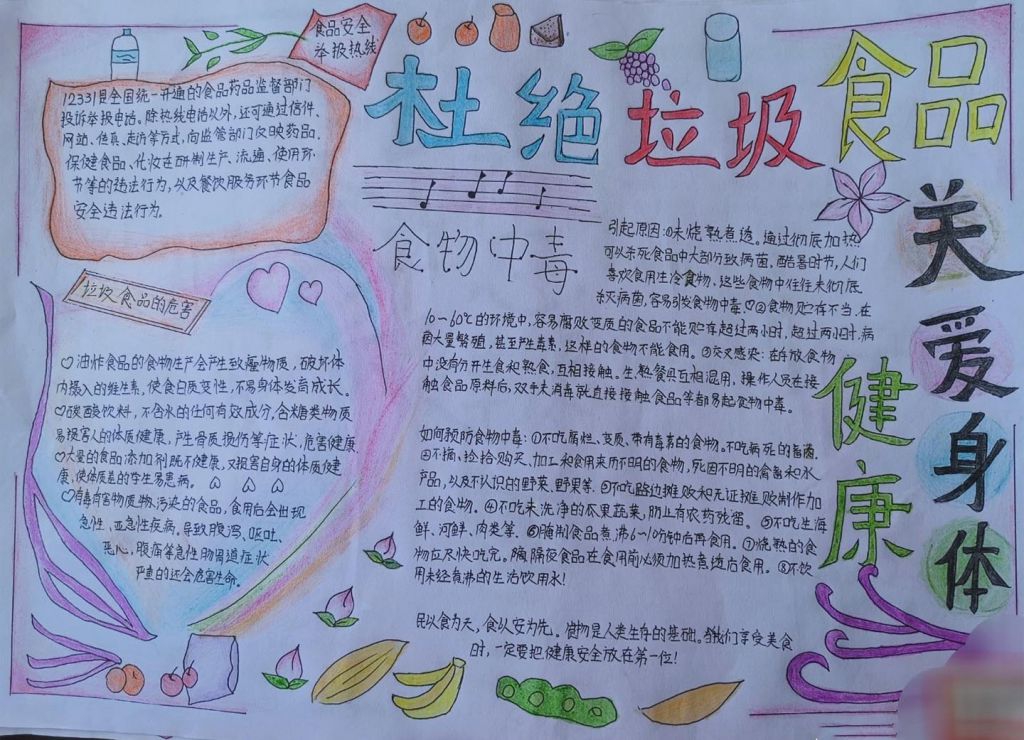 食品安全
举报热线
杜绝垃圾食品
关爱身体
健康
12331是全国统一开通的食品药品监督部门
投诉举报电话。除热线电话以外,还可通过信件、
网站、传真、走访等方式,向监管部门反映药品、
保健食品、化妆在研制生产、流通、使用环
节等的违法行为,以及餐饮服务环节食品
安全违法行为。
垃圾食品的危害
♡油炸食品的食物生产会产生致癌物质,破坏体
内摄入的维生素,使蛋白质变性,不易身体发育成长。
♡碳酸饮料,不含水的任何有效成分,含糖类物质
易损害人的体质健康,产生骨质损伤等症状,危害健康
♡大量的食品添加剂既不健康,又损害自身的体质健
康,使体质差的学生易患病。
♡有毒有害物质物污染的食品,食用后会出现
急性、亚急性疾病。导致腹泻、呕吐、
恶心,腹痛等急性肠胃道症状
严重的还会危害生命。
食物中毒
引起原因:①未烧熟煮透。通过彻底加热
可以杀死食品中大部分致病菌,酷暑时节,人们
喜欢食用生冷食物,这些食物中往往未彻底
杀灭病菌,容易引发食物中毒♡②食物贮存不当,在
10-60℃的环境中,容易腐败变质的食品不能贮存超过两小时,超过两小时,病
菌大量繁殖,甚至产生毒素,这样的食物不能食用。③交叉感染:在存放食物
中没有分开生食和熟食,互相接触。生、熟餐具互相混用,操作人员在接
触食品原料后,双手未消毒就直接接触食品等都易起食物中毒。
如何预防食物中毒:①不吃腐烂、变质、带有毒素的食物。不吃病死的畜禽。
②不摘、捡拾购买、加工和食用来历不明的食物,死因不明的禽畜和水
产品,以及不认识的野菜、野果等。③不吃路边摊贩和无证摊贩制作加
工的食物。④不吃未洗净的瓜果蔬菜,防止有农药残留。⑤不吃生海
鲜、河鲜、肉类等。⑥腌制食品煮沸6~10分钟后再食用。⑦烧熟的食
物应及快吃完。隔夜食品在食用前必须加热煮透后食用。⑧不饮
用未经煮沸的生活饮用水!
民以食为天,食以安为先。食物是人类生存的基础。我们享受美食
时,一定要把健康安全放在第一位!